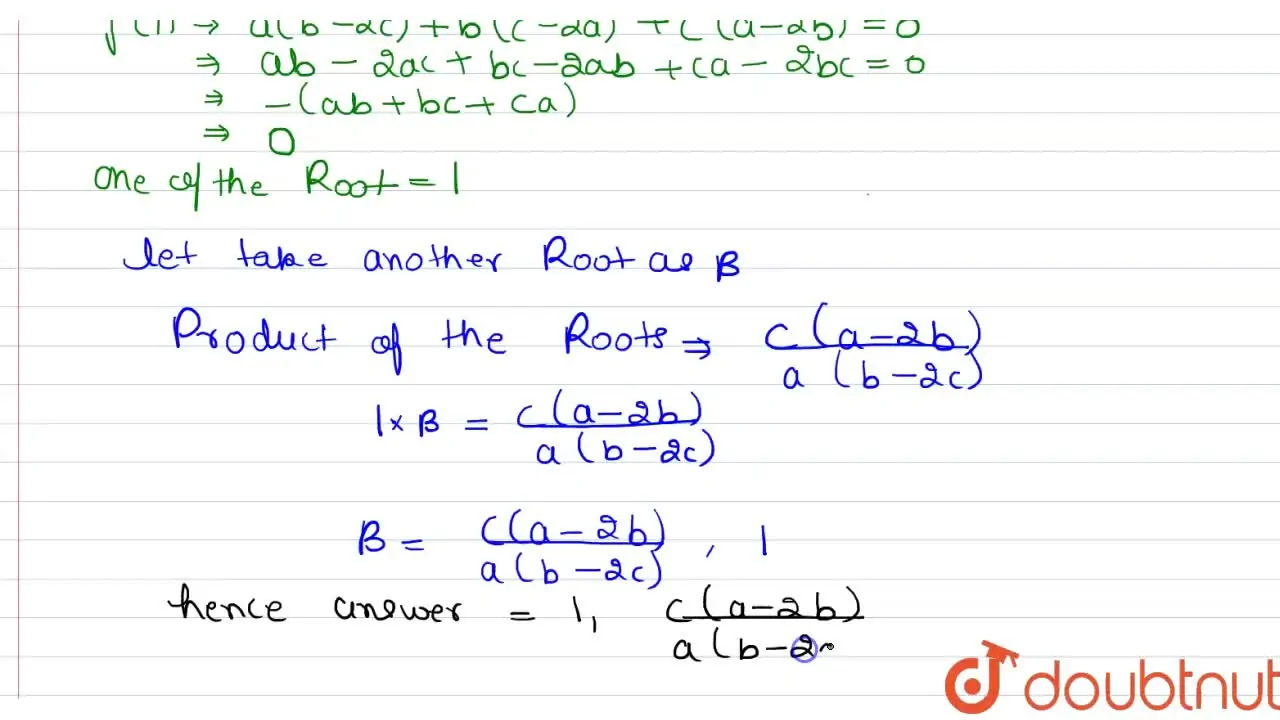 f(1) → a(b-2c)+b(c-2a)+c(a-2b)=0
⇒ ab-2ac+bc-2ab+ca-2bc=0
⇒ -(ab+bc+ca)
⇒ 0
one of the Root=1
let take another Root as β
Product of the Roots ⇒ c(a-2b)/a(b-2c)
1×β = c(a-2b)/a(b-2c)
β = c(a-2b)/a(b-2c), 1
hence answer = 1, c(a-2b)/a(b-2
doubtnut